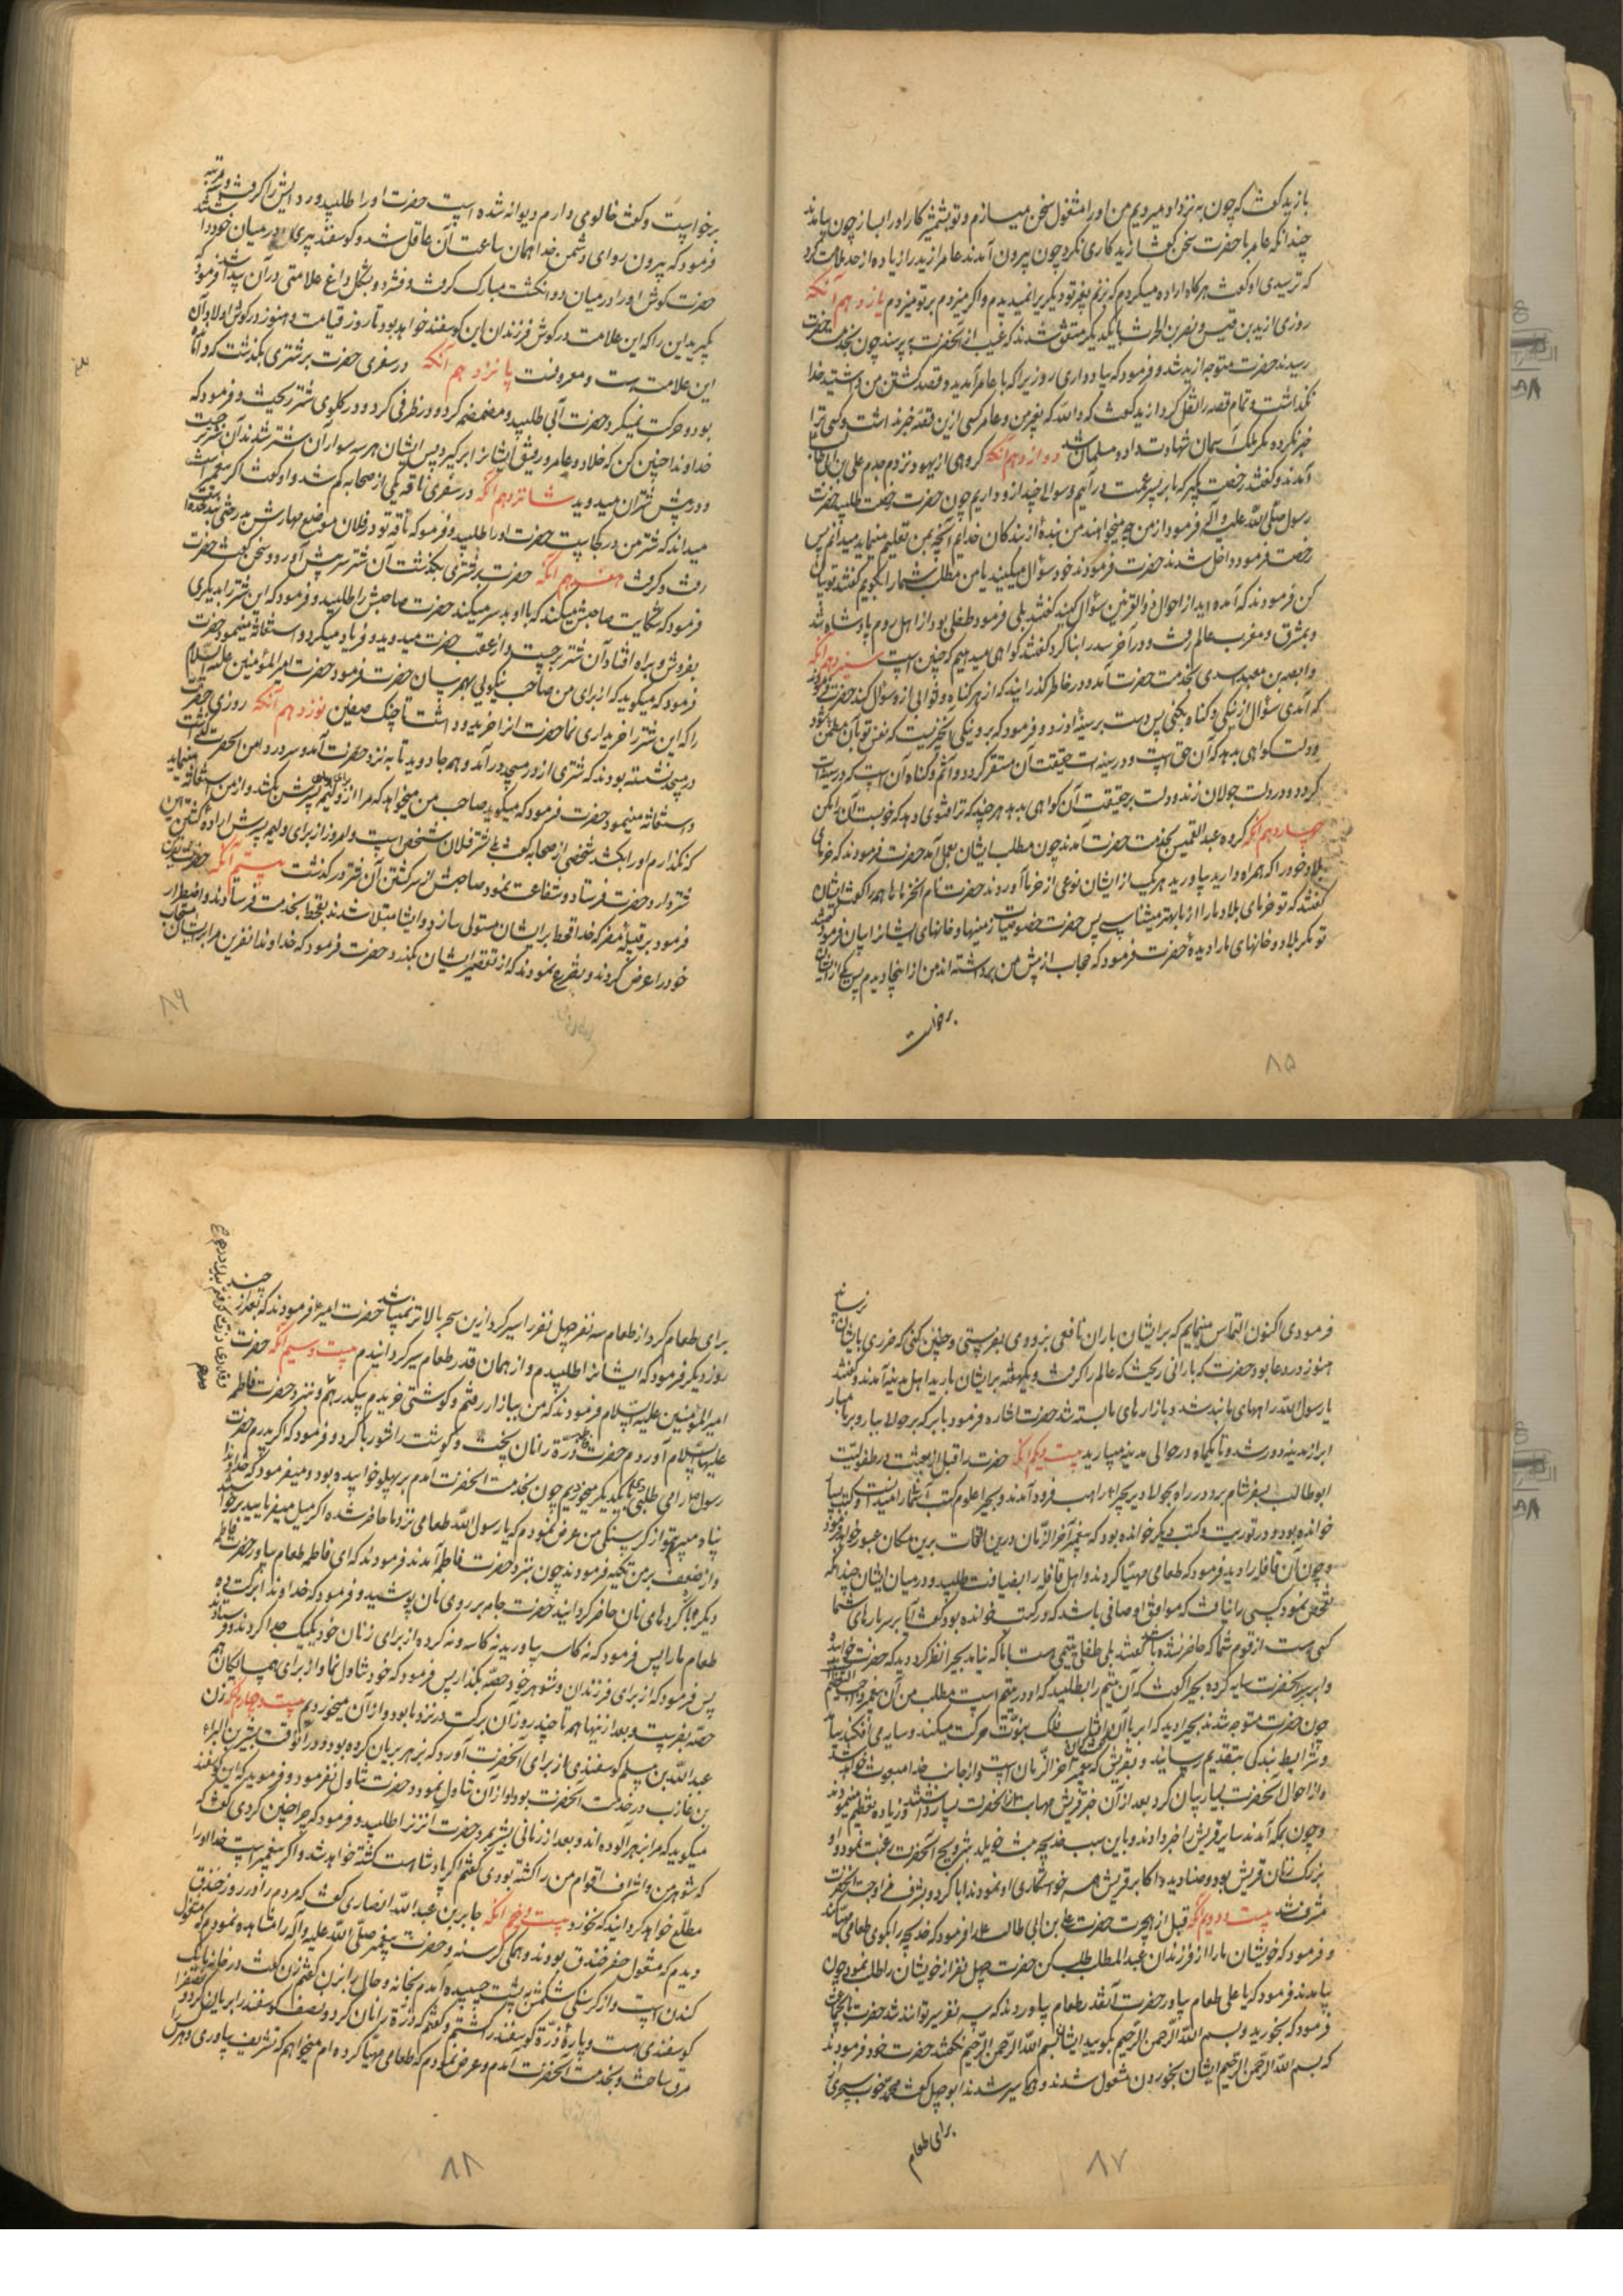 بازید کفت که چون به نزد او میرویم من اورا مشغول سخن میسازم و تو بشمشیر کار اورا بساز چون بیامدند
چندانکه عامر با حضرت سخن کفت ازید کاری نکرد چون بیرون آمدند عامر ازید را زیاده از حد ملامت کرد
که ترسیدی او کفت هرکاه اراده میکردم که بزنم بغیر تو دیکریرا نمیدیدم و اکر میزدم بر تو میزدم یازدهم آنکه
روزی ازید بن قیس و نضر بن الحرث بایکدیکر متفق شدند که غیب از آنحضرت بپرسند چون بخدمت حضرت
رسیدند حضرت متوجه ازید شد و فرمود که بیاد داری روزیرا که با عامر آمدید و قصد کشتن من داشتید خدا
نکذاشت و تمام قصه را نقل کرد ازید کفت که والله که بغیر من و عامر کسی ازین قصه خبر نداشت و کسی ترا
خبر نکرده مکر ملک آسمان شهادت داد و مسلمان شد دوازدهم آنکه کروهی از یهود نزد جدم علی بن ابی طالب
آمدند و کفتند رخصت بکیر که بابر پسر عمت درآئیم و سوالی چند ازو داریم چون حضرت رخصت طلبید حضرت
رسول صلی الله علیه وآله فرمود از من چه میخواهند من بنده از بندکان خدایم آنچه بمن تعلیم مینماید میدانم پس
رخصت فرمود داخل شدند حضرت فرمودند خود سؤال میکنید یا من مطلب شما را بکویم کفتند تو بیان
کن فرمودند که آمده اید از احوال ذوالقرنین سؤال کنید کفتند بلی فرمود طفلی بود از اهل روم پادشاه شد
و بمشرق و مغرب عالم رفت و در آخر سد را بنا کرد کفتند کواهی میدهیم که چنین است سیزدهم آنکه
وابصة بن معبد اسدی بخدمت حضرت آمد و در خاطر کذرانید که از هر کناه و ثوابی ازو سؤال کند حضرت فرمود
که آمدی سؤال از نیکی و کناه بکنی پس دست بر سینه او زد و فرمود که بر و نیکی آنچیزیست که نفس تو بآن مطمئن شود
و دلت کواهی بدهد که آن حق است و در سینه ات حقیقت آن مستقر کردد و اثم و کناه آن است که در سینه ات
کردد و در دلت جولان زند و دلت بر حقیقت آن کواهی ندهد هر چند که ترا فتوی دهد که خوبست آنرا مکن
چهاردهم آنکه کروه عبد القیس بخدمت حضرت آمدند چون مطلب ایشان بعمل آمد حضرت فرمودند که خرمای
بلاد خود را که همراه دارید بیاورید هر یک از ایشان نوعی از خرما آوردند حضرت نام آنخرماها همه را کفت ایشان
کفتند که تو خرمای بلاد ما را از ما بهتر میشناسی پس حضرت خصوصیات زمینها و خانهای ایشانرا بیان فرمود کفتند
تو مکر بلاد و خانهای ما را دیدهٔ حضرت فرمود که حجاب از پیش من برداشته اند من از اینجا دیدم پس یکی از ایشان
برخواست
۸۵
برخواست و کفت خالوی دارم دیوانه شده است حضرت اورا طلبید و ردایش را کرفت و سه مرتبه
فرمود که بیرون رو ای دشمن خدا همان ساعت آن عاقل شد و کوسفند پیری در میان خود داشتند
حضرت کوش اورا در میان دو انکشت مبارک کرفت و فشرد و بشکل داغ علامتی در آن پیدا شد فرمود
بکیرید این را که این علامت در کوش فرزندان این کوسفند خواهد بود تا روز قیامت و هنوز در کوش اولاد آن
این علامت هست و معروفست پانزدهم آنکه در سفری حضرت بر شتری بکذشت که وا مانده
بود و حرکت نمیکرد حضرت آبی طلبید و مضمضه کرد و در ظرفی کرد و در کلوی شتر ریخت و فرمود که
خداوندا چنین کن که خلاد و عامر و رفیق ایشانرا برکیرد پس ایشان هر سه سوار آن شتر شدند آن شتر برجست
و در پیش شتران میدوید شانزدهم آنکه در سفری ناقه یکی از صحابه کم شد و او کفت اکر پیغمبر است
میداند که شتر من در کجاست حضرت اورا طلبید و فرمود که ناقه تو در فلان موضع مهارش بدرختی بند شده
رفت و کرفت هفدهم آنکه حضرت بر شتری بکذشت آن شتر سر پیش آورد و سخن کفت حضرت
فرمود که شکایت صاحبش میکند که با او بد سر میکند حضرت صاحبش را طلبید و فرمود که این شتر را بدیکری
بفروش و براه افتاد آن شتر برجست و از عقب حضرت میدوید و فریاد میکرد و استغاثه مینمود حضرت
فرمود که میکوید که از برای من صاحب نیکوئی بهم رسان حضرت فرمود حضرت امیرالمؤمنین علیه السلام
را که این شتر را خریداری نما حضرت آنرا خرید و داشت تا جنک صفین نوزدهم آنکه روزی حضرت
در مسجد نشسته بودند که شتری از در مسجد درآمد و همه جا دوید تا به نزد حضرت آمد و سر در دامن آنحضرت کذاشت
و استغاثه مینمود حضرت فرمود که میکوید صاحب من میخواهد که مرا از برای ولیمه پسرش بکشد و از من استغاثه مینماید
که نکذارم اورا بکشد شخصی از صحابه کفت که این شتر فلان شخص است و امروز از برای ولیمه پسرش اراده کشتن این
شتر دارد حضرت فرستاد و شفاعت نمود صاحبش از سر کشتن آن شتر درکذشت بیستم آنکه حضرت نفرین
فرمود بر قبیله مضر که خدا قحط بر ایشان مستولی سازد و ایشان مبتلا شدند بقحط بخدمت فرستادند و اضطرار
خود را عرض کردند و تضرع نمودند که از تقصیر ایشان بکذرد حضرت فرمود که خداوندا نفرین مرا برایشان مستجاب
۸۶
فرمودی اکنون التماس مینمایم که بر ایشان باران نافعی بزودی بفرستی و چنین کنی که ضرری بایشان نرساند
هنوز در دعا بود حضرت که بارانی ریخت که عالم را کرفت و یکهفته بر ایشان بارید اهل مدینه آمدند و کفتند
یا رسول الله راههای ما بند شد و بازارهای ما بسته شد حضرت اشاره فرمود بابر که بر حوالا ببار و بر ما مبار
ابر از مدینه دور شد و تا یکماه در حوالی مدینه میبارید بیست و یکم آنکه حضرت را قبل از بعثت در طفولیت
ابوطالب بسفر شام برد در راه بحوالا دیر بحیراء راهب فرود آمدند و بحیرا علوم کتب آسمانرا میدانست و کتب بسیار
خوانده بود و در توریت و کتب دیکر خوانده بود که پیغمبر آخر الزمان درین اوقات برین مکان عبور خواهد فرمود
و چون آن قافله را دید فرمود که طعامی مهیا کردند و اهل قافله را بضیافت طلبید و در میان ایشان چندانکه
تفحص نمود کسی را نیافت که موافق اوصافی باشد که در کتب خوانده بود کفت آیا بر سر بارهای شما
کسی هست از قوم شما که حاضر نشده باشد کفتند بلی طفل یتیمی هست با ما که نیامد بحیرا نظر کرد دید که حضرت خوابیده
و ابر بر آنحضرت سایه کرده بحیرا کفت که آن یتیم را بطلبید که او در یتیم است مطلب من آن پیغمبر واجب التعظیم
چون حضرت متوجه شدند بحیرا دید که ابر با آن آفتاب فلک نبوت حرکت میکند و سایه می افکند بیامد
و شرایط بندکی بتقدیم رسانید و بقریش کفت که این پیغمبر آخر الزمان است و از جانب خدا مبعوث خواهد شد
و از احوال آنحضرت بسیار بیان کرد بعد از آن خبر قریش مهابت از آنحضرت بسیار داشتند و زیاده تعظیم مینمودند
و چون بمکه آمدند سایر قریش را خبر دادند و باین سبب خدیجه بنت خویلد بتزویج آنحضرت رغبت نمود و او
بزرک زنان قریش بود و صنادید و اکابر قریش همه خواستکاری او نمودند ابا کرد و بشرف مزاوجت آنحضرت
مشرف شد بیست و دویم آنکه قبل از هجرت حضرت علی بن ابی طالب را فرمود که خدیجه را بکوی طعامی مهیا کند
و فرمود که خویشان ما را از فرزندان عبد المطلب طلب کن حضرت چهل نفر از خویشان را طلب نمود چون
بیامدند فرمود که یا علی طعام بیاور حضرت آنقدر طعام بیاوردند که سه نفر سیر توانند شد حضرت بآنجماعت
فرمود که بخورید و بسم الله الرحمن الرحیم بکویید ایشان بسم الله الرحمن الرحیم نکفتند حضرت خود فرمودند
که بسم الله الرحمن الرحیم ایشان بخوردن مشغول شدند و همه سیر شدند ابوجهل کفت محمد خوب سحری
برای طعام
۸۷
برای طعام کرد از طعام سه نفر چهل نفر را سیر کرد ازین سحر بالاتر نمیباشد حضرت امیر فرمودند که بعد از چند
روز دیکر فرمود که ایشانرا طلبیدم و از همان قدر طعام سیر کردانیدم بیست و سیم آنکه حضرت
امیرالمؤمنین علیه السلام فرمودند که من ببازار رفتم و کوشتی خریدم بیکدرهم و نزد حضرت فاطمه
علیها السلام آوردم حضرت فاطمه ذرة را نان پخت و کوشت را شوربا کرد و فرمود که اکر پدرم حضرت
رسول را می طلبی تا بایکدیکر میخوردیم چون بخدمت آنحضرت آمدم بر پهلو خوابیده بود و میفرمود که خداوندا
پناه میبرم بتو از کرسنکی من عرض نمودم که یا رسول الله طعامی نزد ما حاضر شده اکر میل میفرمایید برخواست
و از ضعف بر من تکیه فرمودند چون بنزد حضرت فاطمه آمدند فرمودند که ای فاطمه طعام بیاور حضرت فاطمه
دیک را با کردهای نان حاضر کردانید حضرت جامه بر روی نان پوشید و فرمود که خداوندا برکت ده
طعام ما را پس فرمود که نه کاسه بیاورید نه کاسه ونه کرده از برای زنان خود یکیک جدا کردند و فرستادند
پس فرمود که از برای فرزندان و شوهر خود حصه بکذار پس فرمود که خود تناول نما و از برای همسایکان هم
حصه بفرست و بعد از اینها همه تا چند روز آن برکت در نزد ما بود و از آن میخوردیم بیست و چهارم آنکه زن
عبدالله بن مسلم کوسفندی از برای آنحضرت آورد که بزهر بریان کرده بود و در آنوقت بشیر بن البراء
بن عازب در خدمت آنحضرت بود او از آن تناول نمود و حضرت تناول نفرمود و فرمود که این کوسفند
میکوید که مرا بزهر آلوده اند و بعد از زمانی بشیر بمرد حضرت آنزنرا طلبید و فرمود که چرا چنین کردی کفت که
که شوهر من و اشراف اقوام من را کشته بودی کفتم اکر پادشاهست کشته خواهد شد و اکر پیغمبر است خدا اورا
مطلع خواهد کردانید که نخورد بیست و پنجم آنکه جابر بن عبد الله انصاری کفت که مردم را در روز خندق
دیدم که مشغول حفر خندق بودند و همکی کرسنه و حضرت پیغمبر صلی الله علیه وآله را مشاهده نمودم که مشغول
کندن است و از کرسنکی شکمش به پشت چسبیده آمدم بخانه و حال را بزن کفتم زن کفت در خانه ما یک
کوسفندی هست و پارهٔ ذرة کوسفند را کشتم و کفتم که ذرة را نان کرد و نصف کوسفند را بریان کرد و نصفرا
مرق ساخت و بخدمت آنحضرت آمدم و عرض نمودم که طعامی مهیا کرده ام میخواهم که تشریف بیاوری و هر کس
۸۸